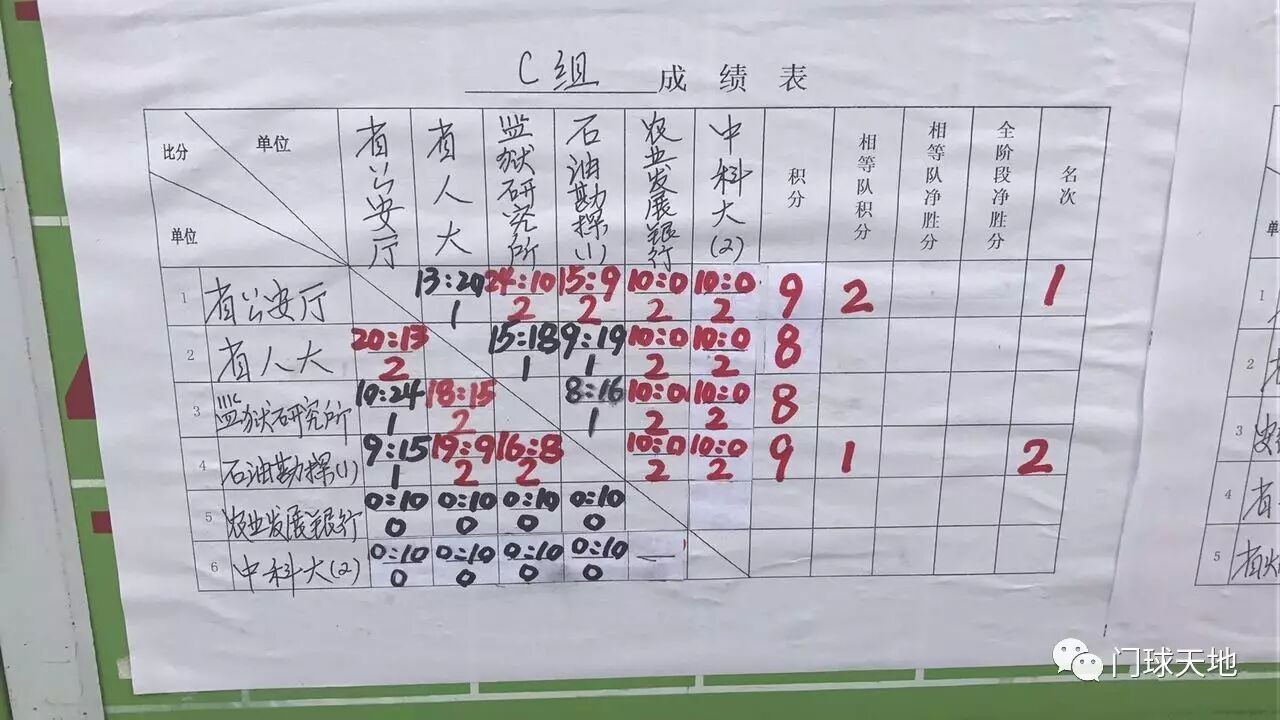 C组 成绩表
比分 单位 省公安厅 省人大 监狱研究所 石油勘探(1) 农业发展银行 中科大(2) 积分 相等队积分 相等队净胜分 全阶段净胜分 名次
单位
1 省公安厅 13:20 24:10 15:9 10:0 10:0 9 2 1
1 2 2 2 2
2 省人大 20:13 15:18 9:19 10:0 10:0 8
2 1 1 2 2
3 监狱研究所 10:24 18:15 8:16 10:0 10:0 8
1 2 1 2 2
4 石油勘探(1) 9:15 19:9 16:8 10:0 10:0 9 1 2
1 2 2 2 2
5 农业发展银行 0:10 0:10 0:10 0:10
0 0 0 0
6 中科大(2) 0:10 0:10 0:10 0:10 —
0 0 0 0
单
1
2
3
4 省
5 省
门球天地